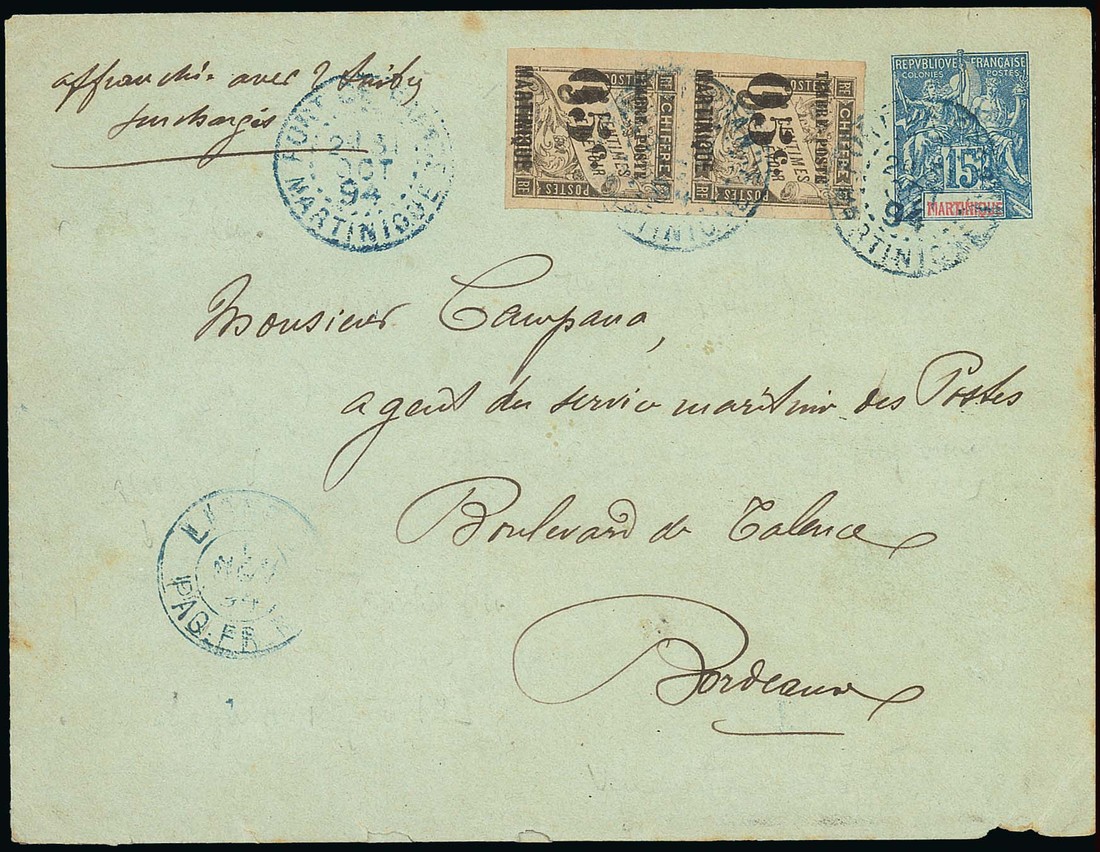 affranchie avec 2 timbres
surchargés
FORT DE FRANCE
OCT
94
MARTINIQUE
TIMBRE-POSTE
05c.
MARTINIQUE
CHIFFRE
CENTIMES
POSTES
TIMBRE-POSTE
05c.
MARTINIQUE
CHIFFRE
CENTIMES
POSTES
MARTINIQUE
REPVBLIQVE FRANÇAISE
COLONIES POSTES
15
MARTINIQUE
94
MARTINIQUE
Monsieur Campana,
agent du service maritime des Postes
Boulevard de Talence
Bordeaux
94
PAQ. FR